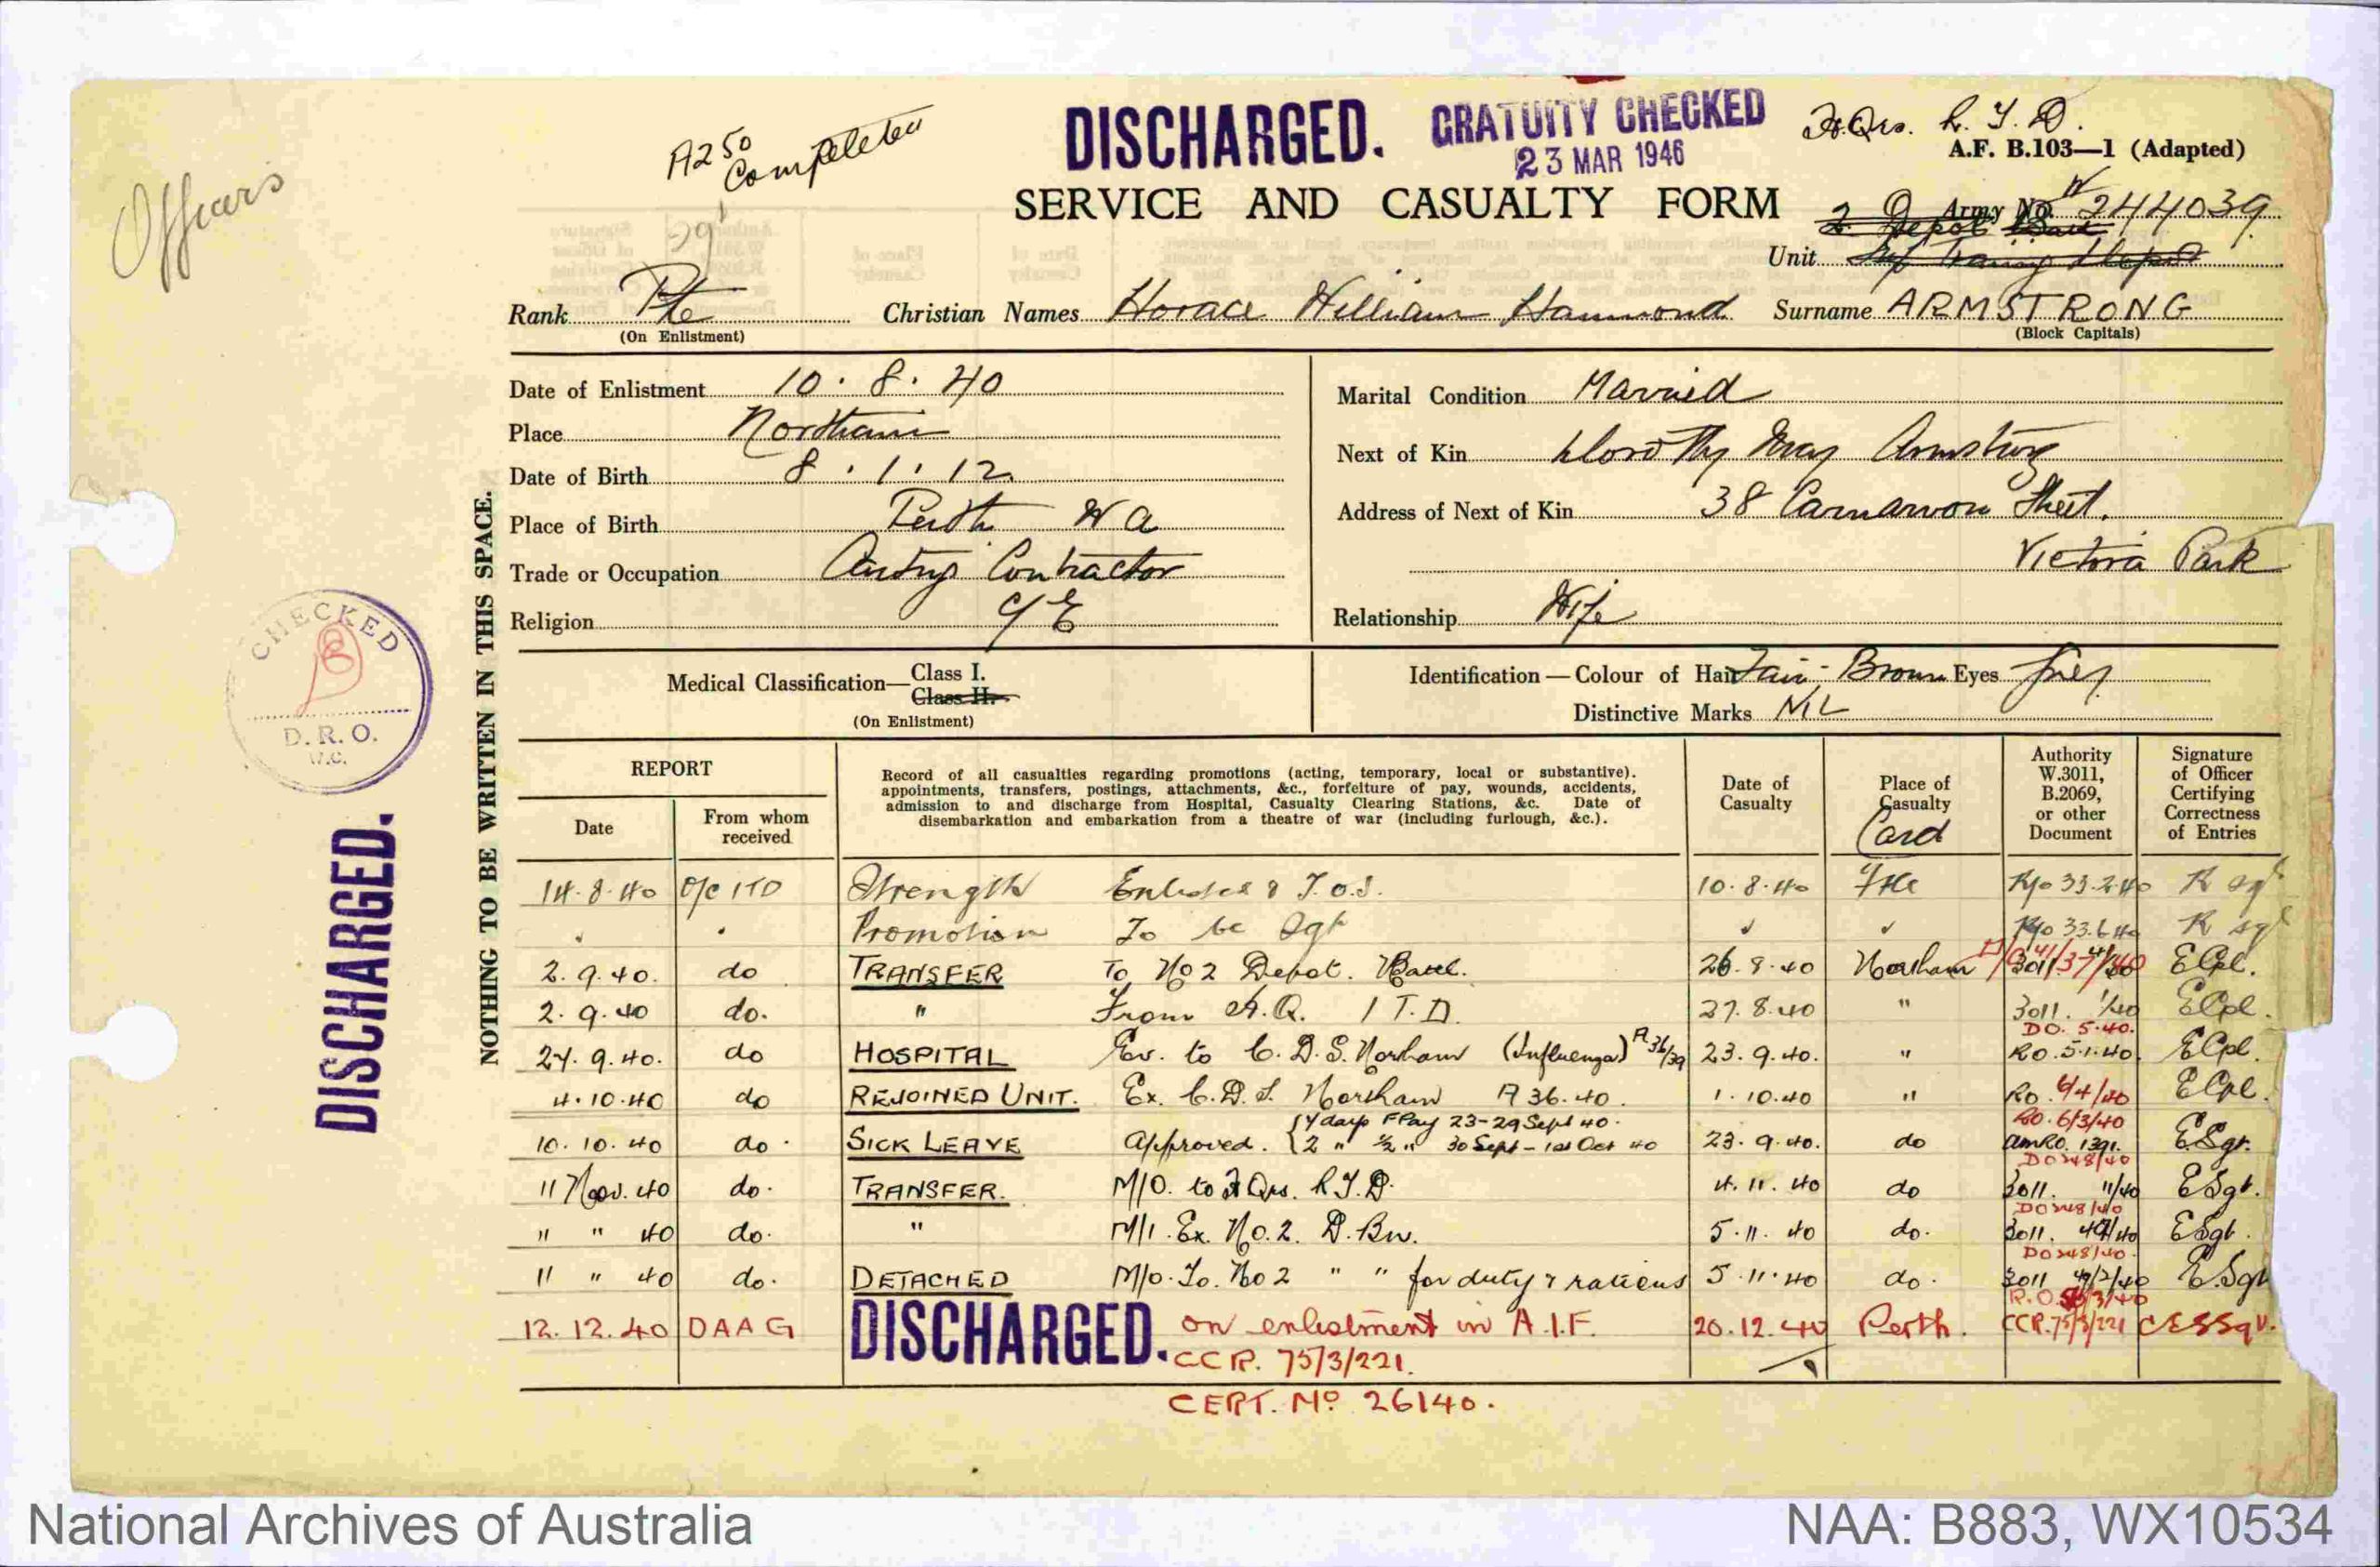 Officers
A250
Completed
DISCHARGED.
GRATUITY CHECKED
23 MAR 1946
A.F. B.103—1 (Adapted)
SERVICE AND CASUALTY FORM
Army No. W 244039
Unit
Rank Pte Christian Names Horace William Hammond Surname ARMSTRONG
(On Enlistment) (Block Capitals)
Date of Enlistment 10.8.40
Place Northam
Date of Birth 8.1.12
Place of Birth Perth WA
Trade or Occupation Contractor
Religion C/E
Marital Condition Married
Next of Kin Dorothy May Armstrong
Address of Next of Kin 38 Carnarvon Street.
Victoria Park
Relationship Wife
Medical Classification— Class I.
Class II.
(On Enlistment)
Identification — Colour of Hair Fair-Brown Eyes Grey
Distinctive Marks NIL
NOTHING TO BE WRITTEN IN THIS SPACE.
CHECKED
D.R.O.
DISCHARGED.
REPORT
Date
From whom received
Record of all casualties regarding promotions (acting, temporary, local or substantive).
appointments, transfers, postings, attachments, &c., forfeiture of pay, wounds, accidents,
admission to and discharge from Hospital, Casualty Clearing Stations, &c. Date of
disembarkation and embarkation from a theatre of war (including furlough, &c.).
Date of Casualty
Place of Casualty
Card
Authority W.3011, B.2069, or other Document
Signature of Officer Certifying Correctness of Entries
14.8.40 O/C ITD Strength Enlisted & T.O.S. 10.8.40
Promotion To be Sgt
2.9.40. do TRANSFER To No 2 Depot. Battl. 26.8.40 Northam ECpl.
2.9.40 do. " From H.Q. ITD. 27.8.40 " 3011. 1/40 ECpl.
DO. 5.40.
27.9.40. do HOSPITAL Ev. to C.D.S. Northam (Influenza) A36/39 23.9.40. " RO.5.1.40 ECpl.
4.10.40 do REJOINED UNIT. Ex. C.D.S. Northam A36.40. 1.10.40 " RO. 6/4/40 ECpl.
RO.6/3/40
10.10.40 do. SICK LEAVE Approved. {7 days FPay 23-29 Sept 40.
2 " ½ " 30 Sept – 1st Oct 40 23.9.40. do AMRO.1391. ESgt.
DO248/40
11 Nov. 40 do. TRANSFER. M/O. to H Qrs. R.T.D. 4.11.40 do 3011. 11/40 ESgt.
DO248/40
" " 40 do. " M/I. Ex. No.2. D.Bn. 5.11.40 do. 3011. ESgt.
DO248/40.
11 " 40 do. DETACHED M/O. To. No 2 " " for duty & rations 5.11.40 do. 3011 E.Sgt
12.12.40 DAAG DISCHARGED. on enlistment in A.I.F. 20.12.40 Perth. CCR.75/3/221
CCR. 75/3/221.
CERT. No 26140.
National Archives of Australia
NAA: B883, WX10534